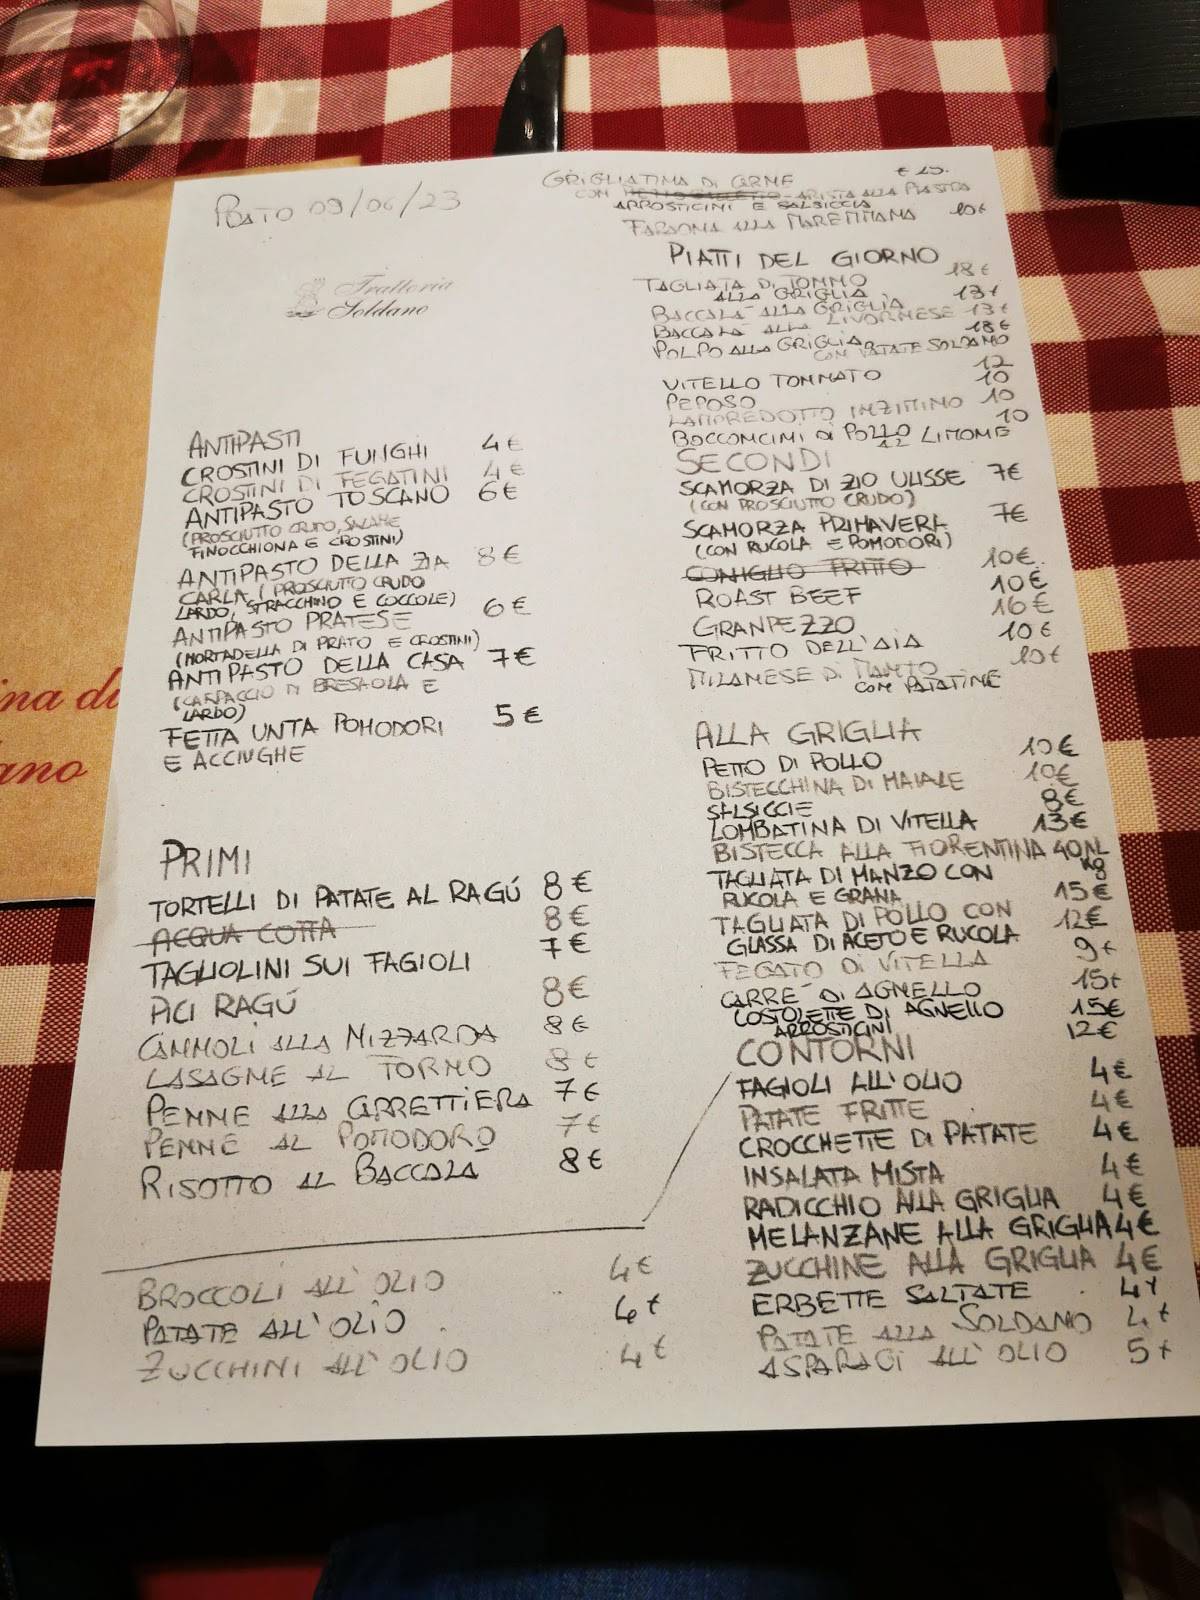 PRATO 09/06/23
Trattoria
Soldano
ANTIPASTI
CROSTINI DI FUNGHI 4€
CROSTINI DI FEGATINI 4€
ANTIPASTO TOSCANO 6€
(PROSCIUTTO CRUDO, SALAME
FINOCCHIONA E CROSTINI)
ANTIPASTO DELLA ZIA 8€
CARLA (PROSCIUTTO CRUDO
LARDO, STRACCHINO E COCCOLE)
ANTIPASTO PRATESE 6€
(MORTADELLA DI PRATO E CROSTINI)
ANTIPASTO DELLA CASA 7€
(CARPACCIO DI BRESAOLA E
LARDO)
FETTA UNTA POMODORI 5€
E ACCIUGHE
PRIMI
TORTELLI DI PATATE AL RAGÚ 8€
ACQUA COTTA 8€
TAGLIOLINI SUI FAGIOLI 7€
PICI RAGÚ 8€
CANNOLI ALLA NIZZARDA 8€
LASAGNE AL FORNO 8€
PENNE ALLA CARRETTIERA 7€
PENNE AL POMODORO 7€
RISOTTO AL BACCALA 8€
BROCCOLI ALL'OLIO 4€
PATATE ALL'OLIO 4€
ZUCCHINI ALL'OLIO 4€
GRIGLIATINA DI CARNE
CON ARISTA ALLA PIASTRA
ARROSTICINI E SALSICCIA
FARAONA ALLA MAREMMANA 10€
PIATTI DEL GIORNO
TAGLIATA DI TONNO 18€
ALLA GRIGLIA
BACCALA' ALLA GRIGLIA 13€
BACCALA' ALLA LIVORNESE 13€
POLPO ALLA GRIGLIA 18€
CON PATATE SOLDANO
VITELLO TONNATO 12
PEPOSO 10
LAMPREDOTTO INZIMINO 10
BOCCONCINI DI POLLO AL LIMONE 10
SECONDI
SCAMORZA DI ZIO ULISSE 7€
(CON PROSCIUTTO CRUDO)
SCAMORZA PRIMAVERA 7€
(CON RUCOLA E POMODORI)
CONIGLIO FRITTO 10€
ROAST BEEF 10€
GRANPEZZO 16€
FRITTO DELL'AIA 10€
MILANESE DI MANZO 10€
CON PATATINE
ALLA GRIGLIA
PETTO DI POLLO 10€
BISTECCHINA DI MAIALE 10€
SALSICCIE 8€
LOMBATINA DI VITELLA 13€
BISTECCA ALLA FIORENTINA 40 AL
Kg
TAGLIATA DI MANZO CON
RUCOLA E GRANA 15€
TAGLIATA DI POLLO CON 12€
GLASSA DI ACETO E RUCOLA
FEGATO DI VITELLA 9€
CARRE' DI AGNELLO 15€
COSTOLETTE DI AGNELLO 15€
ARROSTICINI 12€
CONTORNI
FAGIOLI ALL'OLIO 4€
PATATE FRITTE 4€
CROCCHETTE DI PATATE 4€
INSALATA MISTA 4€
RADICCHIO ALLA GRIGLIA 4€
MELANZANE ALLA GRIGLIA 4€
ZUCCHINE ALLA GRIGLIA 4€
ERBETTE SALTATE 4€
PATATE ALLA SOLDANO 4€
ASPARAGI ALL'OLIO 5€